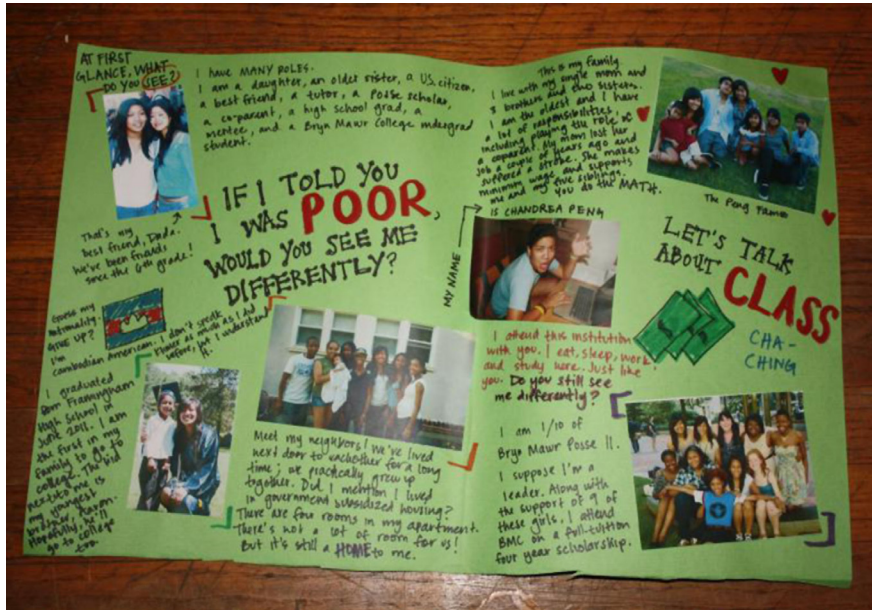 AT FIRST
GLANCE, WHAT
DO YOU SEE?
I have MANY ROLES.
I am a daughter, an older sister, a U.S. citizen,
a best friend, a tutor, a Posse scholar,
a coparent, a high school grad, a
mentee, and a Bryn Mawr College undergrad
student.
That's my
best friend, Dada.
We've been friends
since the 6th grade!
IF I TOLD YOU
I WAS POOR,
WOULD YOU SEE ME
DIFFERENTLY?
Guess my
nationality.
GIVE UP?
I'm
Cambodian American. I don't speak
Khmer as much as I did
before, but I understand
it.
I graduated
from Framingham
High School in
June 2011. I am
the first in my
family to go to
college. The kid
next to me is
my youngest
brother, Aaron.
Hopefully, he'll
go to college
too.
Meet my neighbors! We've lived
next door to eachother for a long
time; we practically grew up
together. Did I mention I lived
in government subsidized housing?
There are four rooms in my apartment.
There's not a lot of room for us!
But it's still a HOME to me.
This is my family.
I live with my single mom and
3 brothers and two sisters.
I am the oldest and I have
a lot of responsibilities,
including playing the role of
a coparent. My mom lost her
job a couple of years ago and
suffered a stroke. She makes
minimum wage and supports
me and my five siblings.
You do the MATH.
The Peng Fam
MY NAME
IS CHANDREA PENG
LET'S TALK
ABOUT CLASS
CHA-
CHING
I attend this institution
with you. I eat, sleep, work
and study here. Just like
you. Do you still see
me differently?
I am 1/10 of
Bryn Mawr Posse 11.
I suppose I'm a
leader. Along with
the support of 9 of
these girls. I attend
BMC on a full-tuition
four year scholarship.